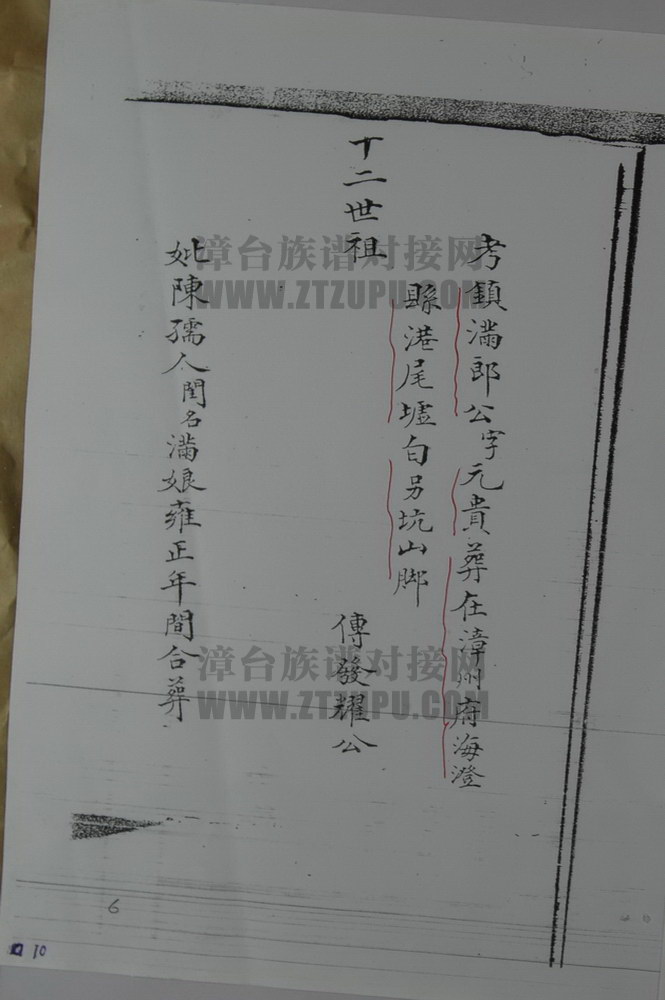 考鎮滿郎公字元貴葬在漳州府海澄
縣港尾墟白另坑山脚
十二世祖
傳發耀公
妣陳孺人閏名滿娘雍正年間合葬
漳台族谱对接网
WWW.ZTZUPU.COM
漳台族谱对接网
WWW.ZTZUPU.COM
6
10